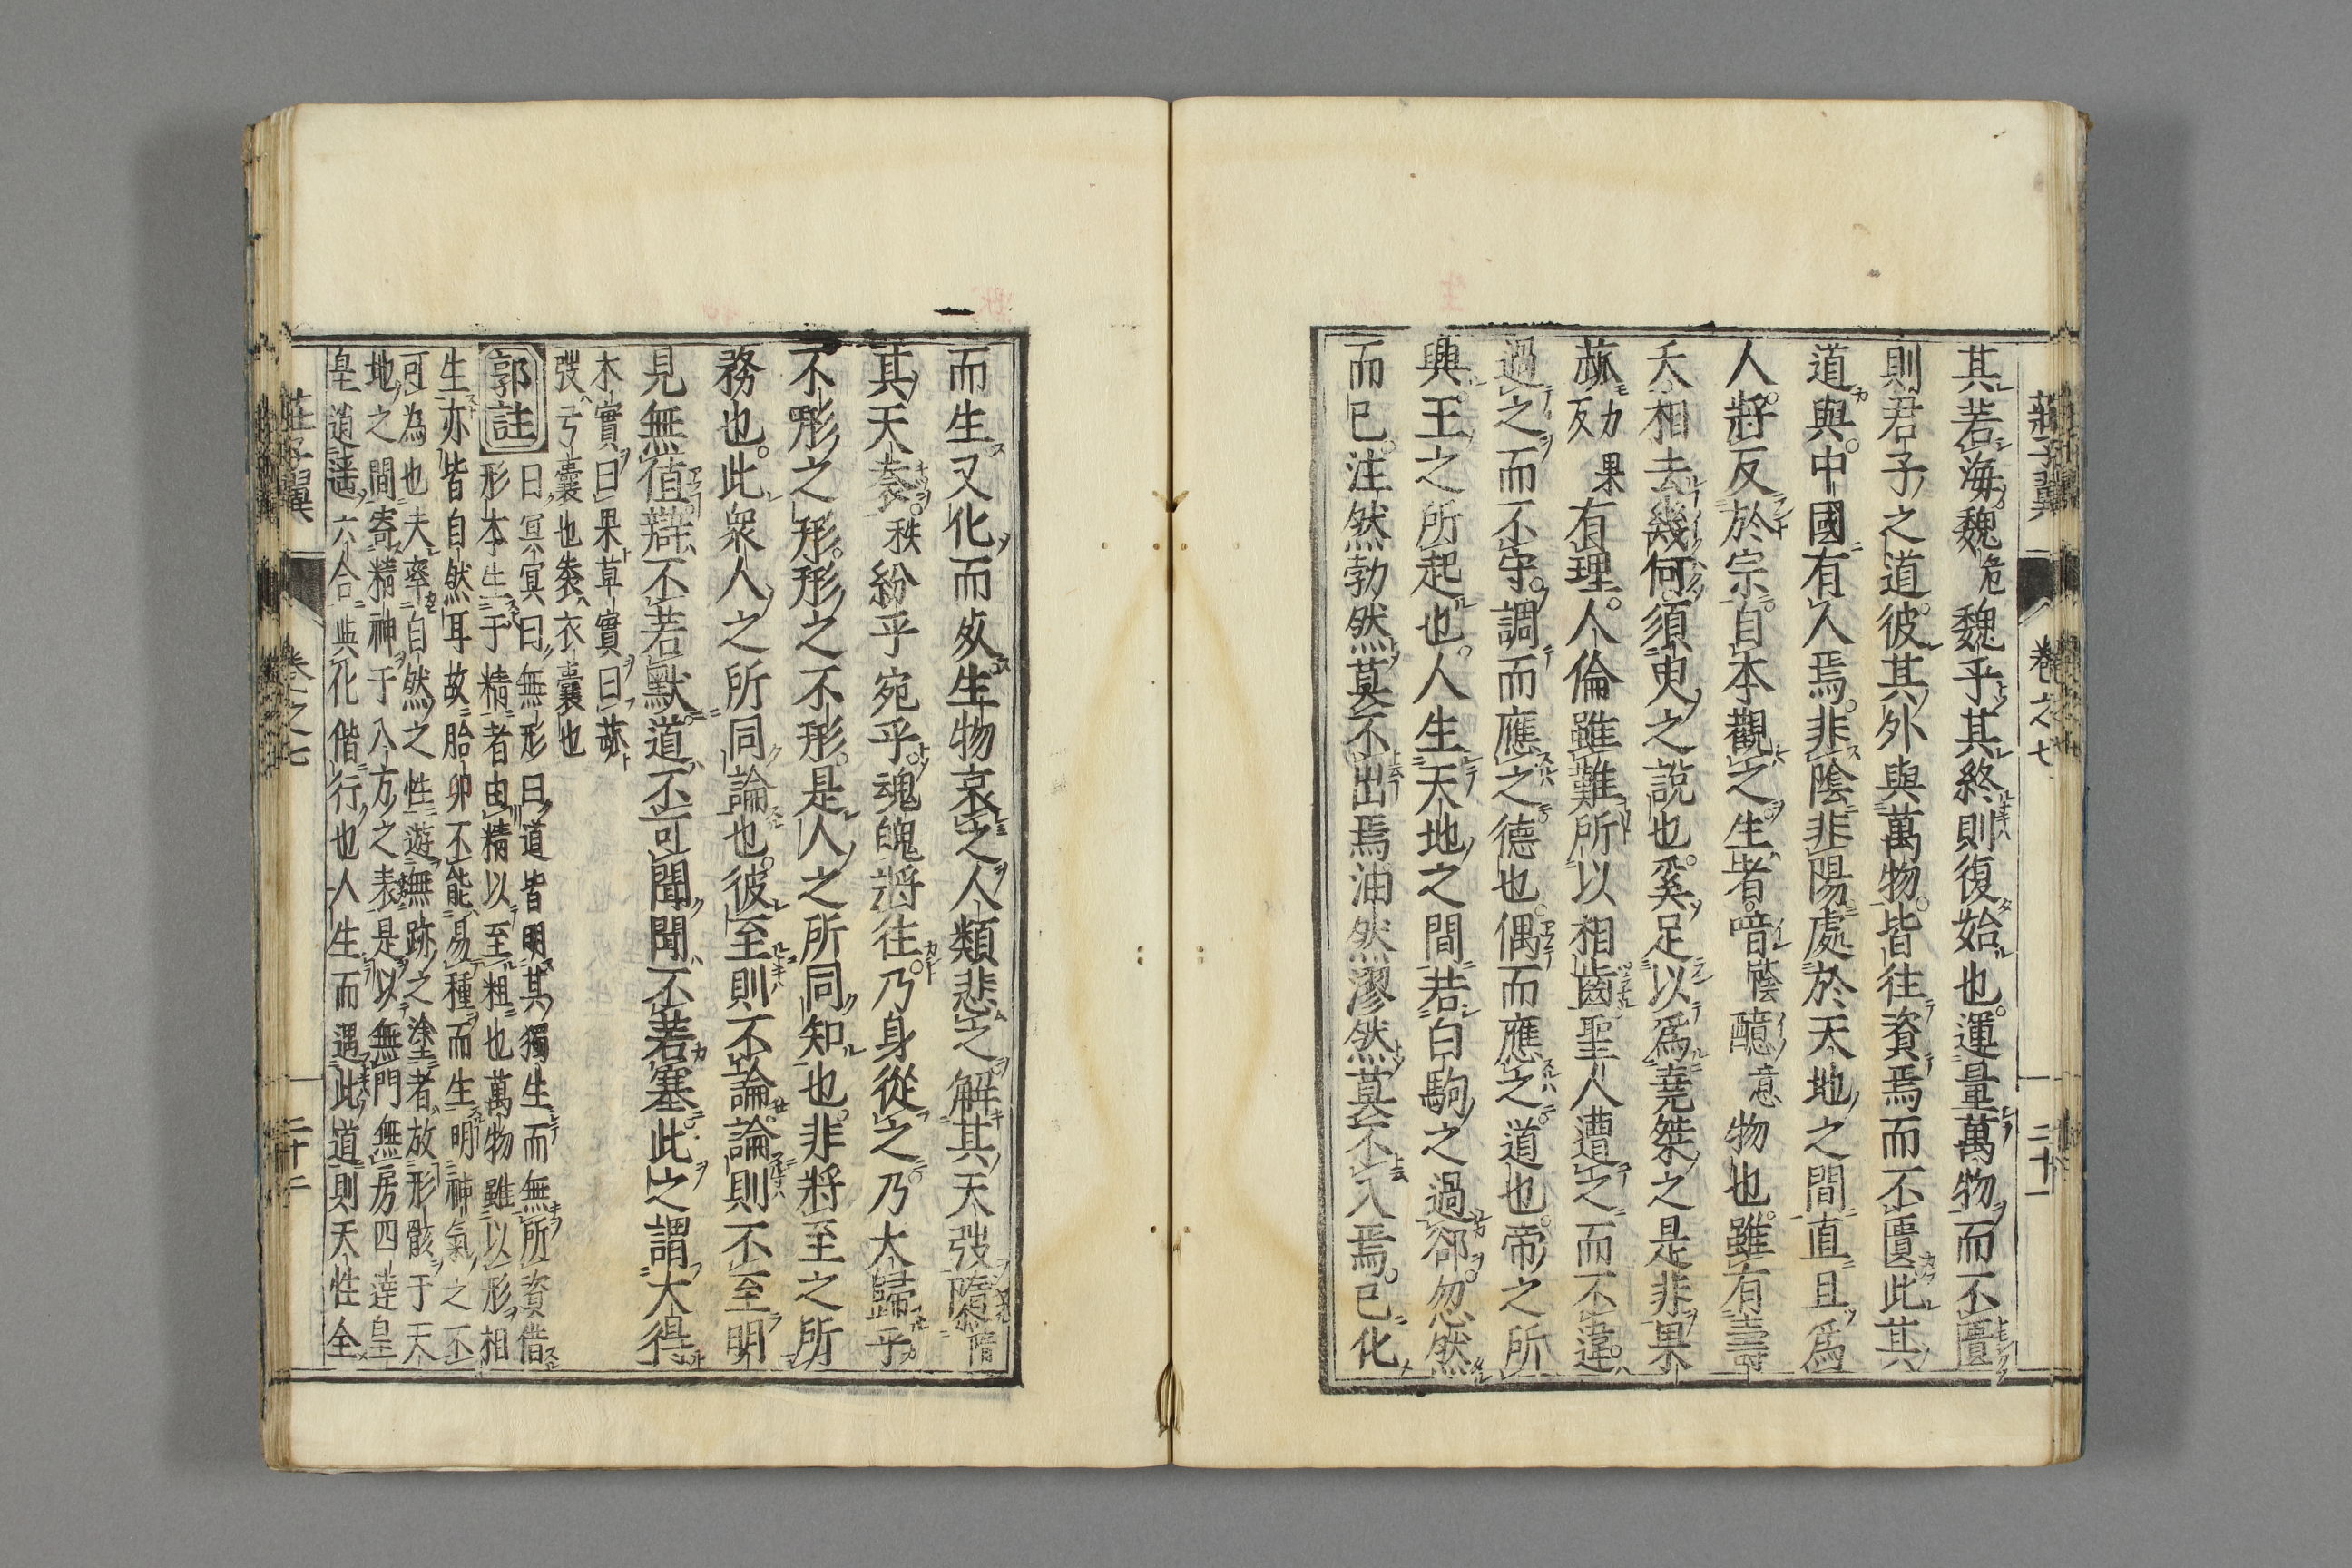 莊子翼 卷之七 二十一
其若海魏危魏乎其終則復始也運量萬物而不匱
則君子之道彼其外與萬物皆往資焉而不匱此其
道與中國有人焉非陰非陽處於天地之間直且爲
人將反於宗自本觀之生者喑蔭醷意物也雖有壽
夭相去幾何須臾之說也奚足以爲堯桀之是非果
蓏力果反有理人倫雖難所以相齒聖人遭之而不違
過之而不守調而應之德也偶而應之道也帝之所
興王之所起也人生天地之間若白駒之過郤忽然
而已注然勃然莫不出焉油然漻然莫不入焉已化
而生又化而死生物哀之人類悲之解其天弢墮其
其天袠秩紛乎宛乎魂魄將往乃身從之乃大歸乎
不形之形形之不形是人之所同知也非將至之所
務也此衆人之所同論也彼至則不論論則不至明
見無值辯不若默道不可聞聞不若塞此之謂大得
木實曰果草實曰蓏
弢弓囊也袠衣囊也
郭註
曰冥冥曰無形曰道皆明其獨生而無所資借
形本生于精者由精以至粗也萬物雖以形相
生亦皆自然耳故胎卵不能易種而生明神氣之不
可為也夫率自然之性遊無跡之塗者放形骸于天
地之間寄精神于八方之表是以無門無房四達皇
皇逍遥六合與化偕行也人生而遇此道則天性全
莊子翼 卷之七 二十二